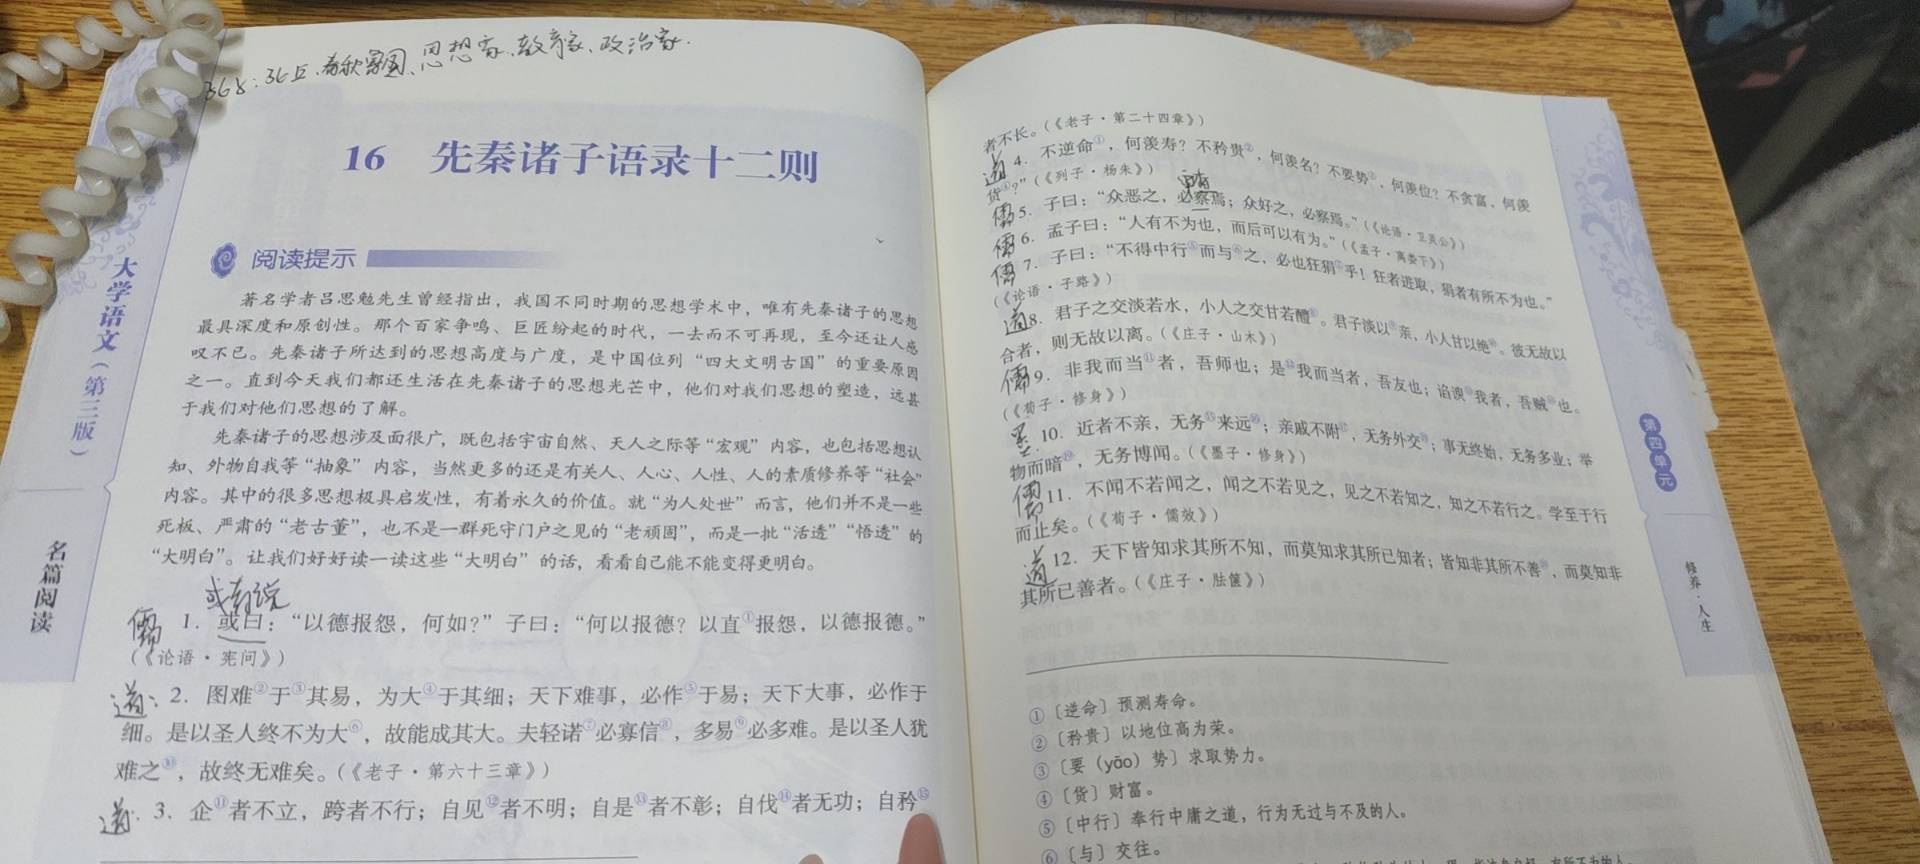 368:365、春秋鲁国、思想家、教育家、政治家.
16 先秦诸子语录十二则
阅读提示
著名学者吕思勉先生曾经指出，我国不同时期的思想学术中，唯有先秦诸子的思想
最具深度和原创性。那个百家争鸣、巨匠纷起的时代，一去而不可再现，至今还让人感
叹不已。先秦诸子所达到的思想高度与广度，是中国位列“四大文明古国”的重要原因
之一。直到今天我们都还生活在先秦诸子的思想光芒中，他们对我们思想的塑造，远甚
于我们对他们思想的了解。
先秦诸子的思想涉及面很广，既包括宇宙自然、天人之际等“宏观”内容，也包括思想认
知、外物自我等“抽象”内容，当然更多的还是有关人、人心、人性、人的素质修养等“社会”
内容。其中的很多思想极具启发性，有着永久的价值。就“为人处世”而言，他们并不是一些
死板、严肃的“老古董”，也不是一群死守门户之见的“老顽固”，而是一批“活透”“悟透”的
“大明白”。让我们好好读一读这些“大明白”的话，看看自己能不能变得更明白。
或有说
儒 1. 或曰：“以德报怨，何如？”子曰：“何以报德？以直①报怨，以德报德。”
（《论语·宪问》）
道： 2. 图难②于③其易，为大④于其细；天下难事，必作⑤于易；天下大事，必作于
细。是以圣人终不为大⑥，故能成其大。夫轻诺⑦必寡信⑧，多易⑨必多难。是以圣人犹
难之⑩，故终无难矣。（《老子·第六十三章》）
道. 3. 企⑪者不立，跨者不行；自见⑫者不明；自是⑬者不彰；自伐⑭者无功；自矜⑮
大学语文（第三版）
名篇阅读
者不长。（《老子·第二十四章》）
道 4. 不逆命①，何羡寿？不矜贵②，何羡名？不要势③，何羡位？不贪富，何羡
货④？”（《列子·杨朱》）
儒 5. 子曰：“众恶之，必察焉；众好之，必察焉。”（《论语·卫灵公》）
儒 6. 孟子曰：“人有不为也，而后可以有为。”（《孟子·离娄下》）
儒 7. 子曰：“不得中行⑤而与⑥之，必也狂狷⑦乎！狂者进取，狷者有所不为也。”
（《论语·子路》）
道8. 君子之交淡若水，小人之交甘若醴⑧。君子淡以⑨亲，小人甘以绝⑩。彼无故以
合者，则无故以离。（《庄子·山木》）
儒9. 非我而当⑪者，吾师也；是⑫我而当者，吾友也；谄谀⑬我者，吾贼⑭也。
（《荀子·修身》）
墨. 10. 近者不亲，无务⑮来远⑯；亲戚不附⑰，无务外交⑱；事无终始，无务多业；举
物而暗⑲，无务博闻。（《墨子·修身》）
儒 11. 不闻不若闻之，闻之不若见之，见之不若知之，知之不若行之。学至于行
而止矣。（《荀子·儒效》）
道 12. 天下皆知求其所不知，而莫知求其所已知者；皆知非其所不善⑳，而莫知非
其所已善者。（《庄子·胠箧》）
①〔逆命〕预测寿命。
②〔矜贵〕以地位高为荣。
③〔要（yāo）势〕求取势力。
④〔货〕财富。
⑤〔中行〕奉行中庸之道，行为无过与不及的人。
⑥〔与〕交往。
第四单元
修养·人生